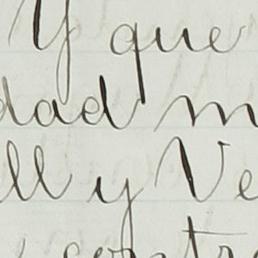 y que
dad m
ll y Ve
contra